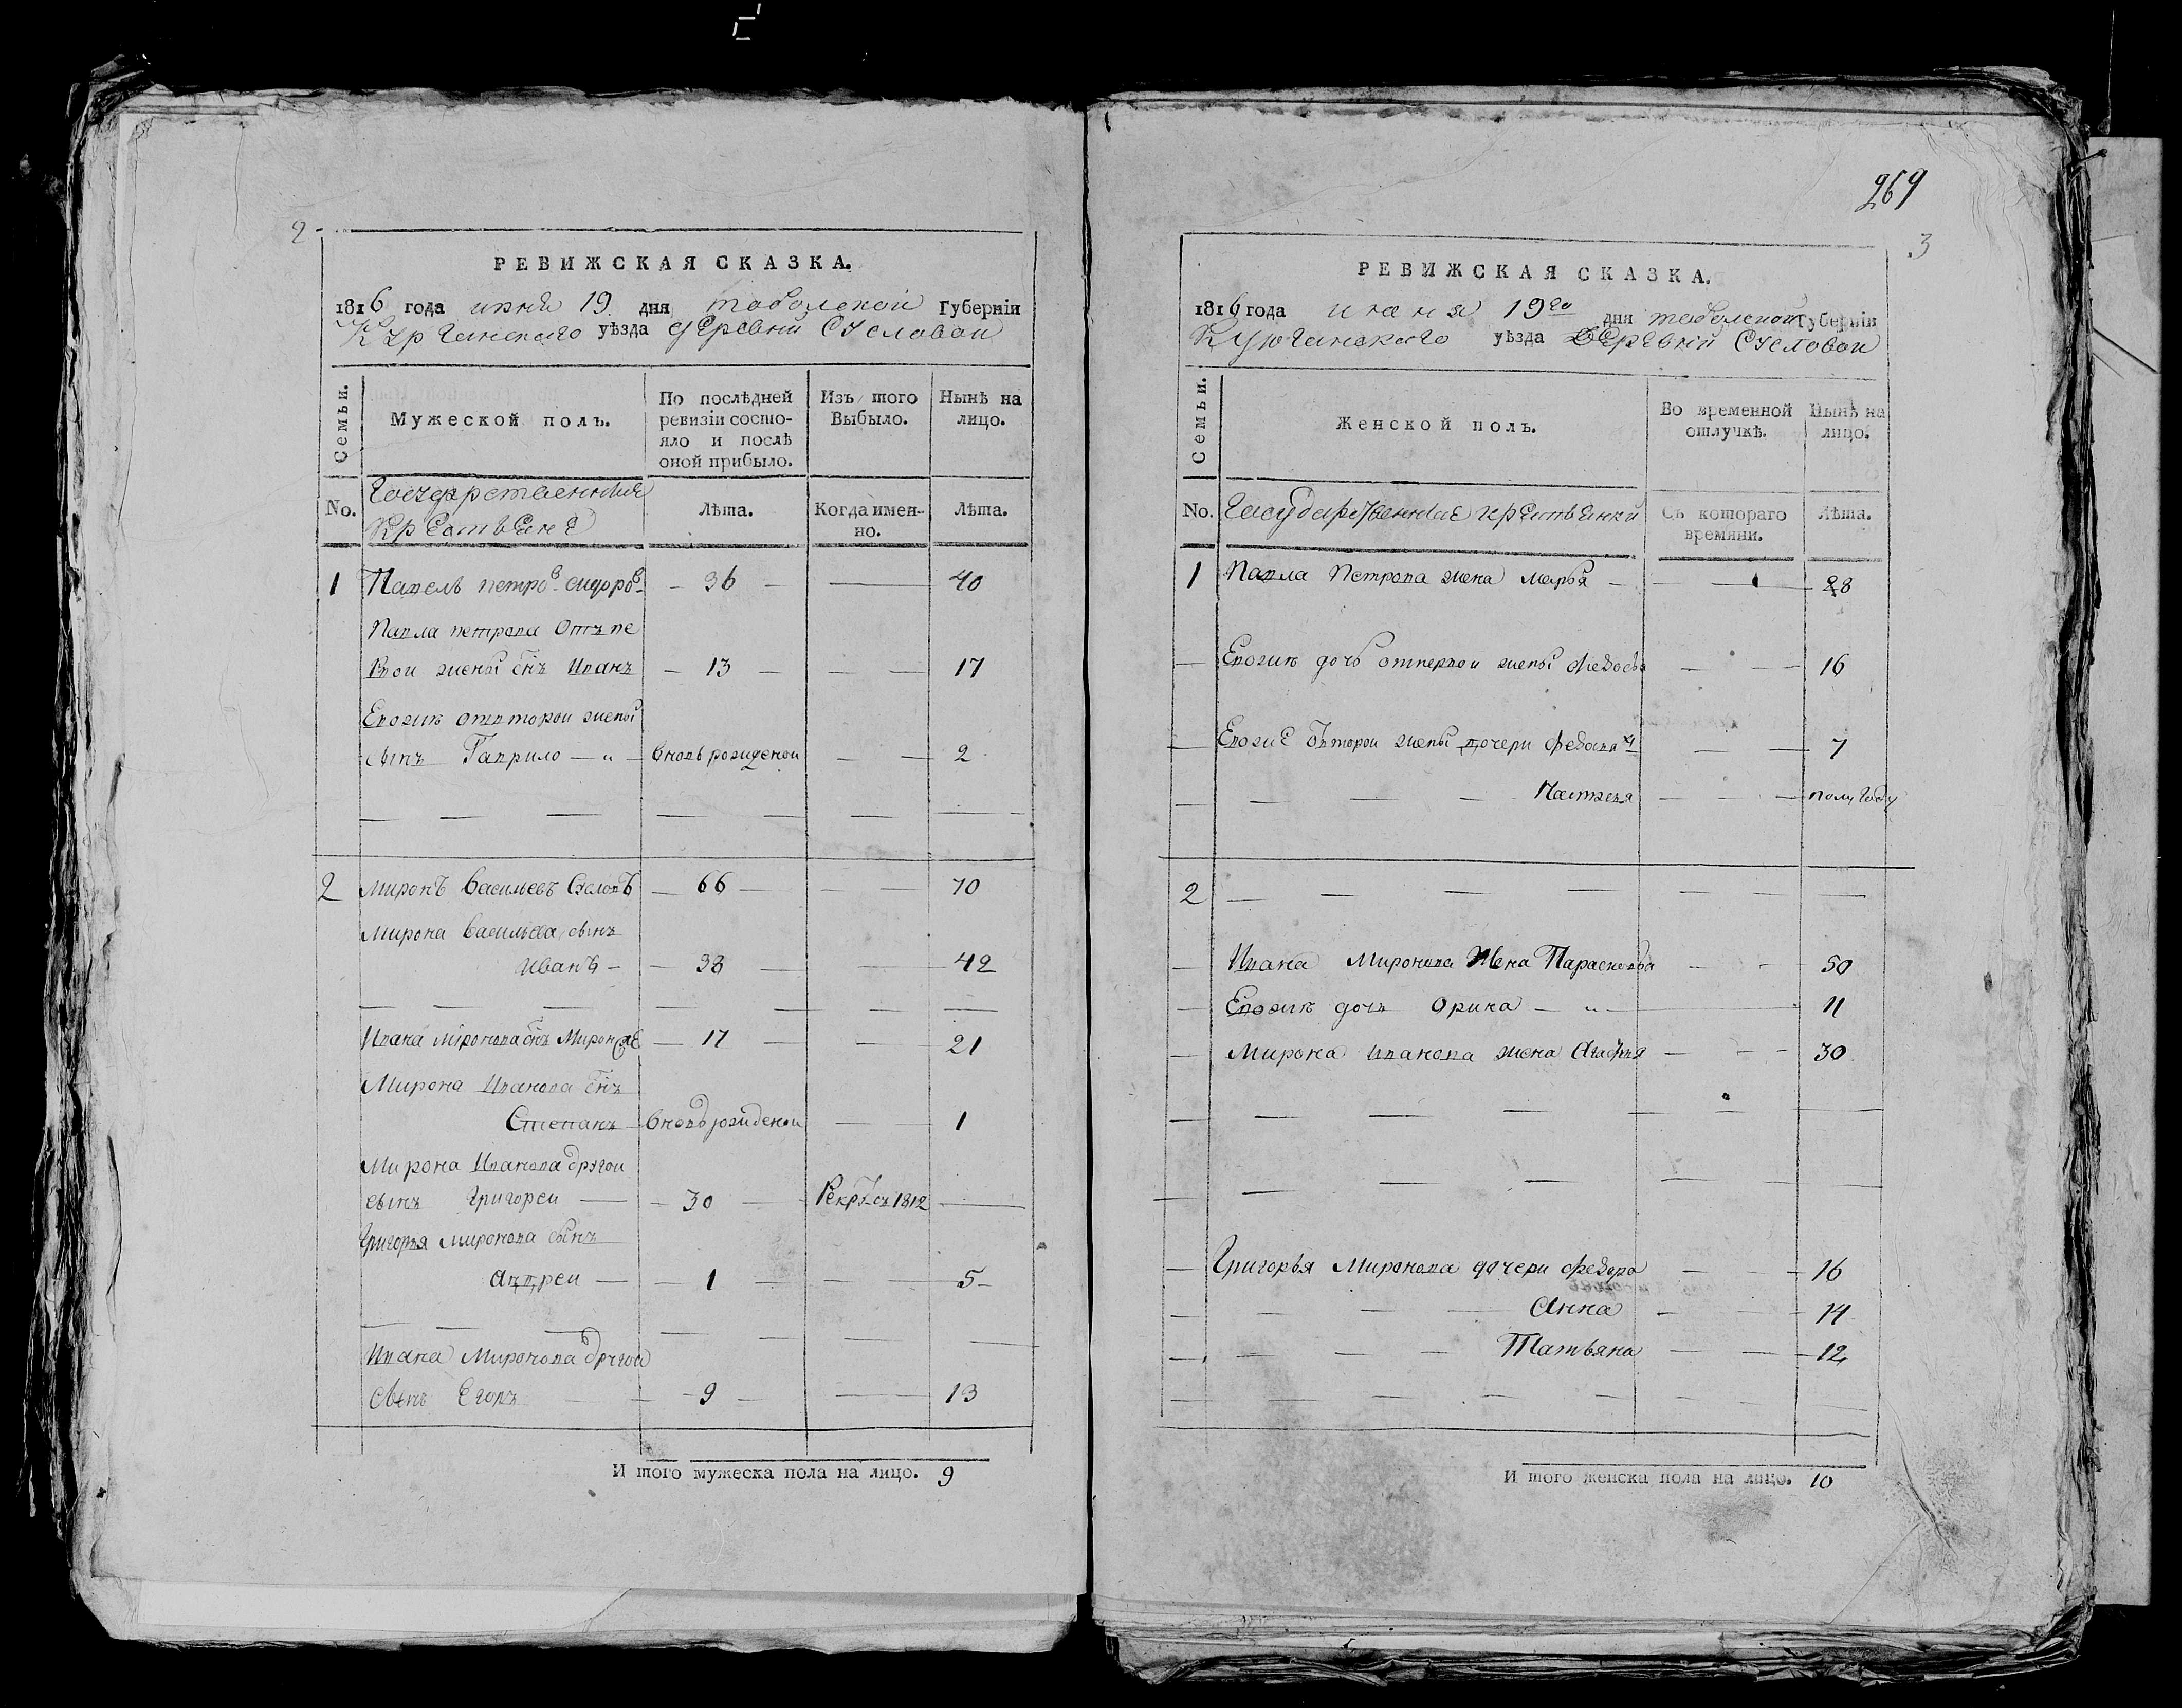 2
РЕВИЖСКАЯ СКАЗКА.
1816 года июня 19 дня тобольской Губерніи
Курганскаго уѣзда деревни Сусловои
Семьи.
Мужеской полъ.
По послѣдней ревизіи состояло и послѣ оной прибыло.
Изъ того Выбыло.
Нынѣ на лицо.
No.
Государственныя
Крестьяне
Лѣта.
Когда именно.
Лѣта.
1 Павелъ петро в сидоро в 36 40
Павла петрова отъ пе
рвои жены снъ Иванъ 13 17
Евожъ отъ второи жены
сынъ Гаврило вновь рожденои 2
2 Миронъ Васильевъ 66 70
Мирона Васильева сынъ
Иванъ 38 42
Ивана миронова снъ Мирон 17 21
Мирона Иванова снъ
Степанъ вновь рожденои 1
Мирона Иванова другои
сынъ Григореи 30 Рекрутъ 1812
Григорья миронова сынъ
андреи 1 5
Ивана Миронова другои
сынъ Егоръ 9 13
И того мужеска пола на лицо. 9
269
3
РЕВИЖСКАЯ СКАЗКА.
1816 года июня 19 го дня тобольскои Губерніи
Курганскаго уѣзда Деревни Сусловои
Семьи.
Женской полъ.
Во временной отлучкѣ.
Нынѣ на лицо.
No.
Государственные крестьянки
Съ котораго времяни.
Лѣта.
1 Павла Петрова жена марья 28
Евожъ дочь отпервои жены федосья 16
Евоже второи жены дочери 7
Настасья полу году
2
Ивана Миронова Жена Парасковья 50
Евожъ дочь орина 11
Мирона иванова жена Агафья 30
Григорья Миронова дочери федора 16
Анна 14
Татьяна 12
И того женска пола на лицо. 10